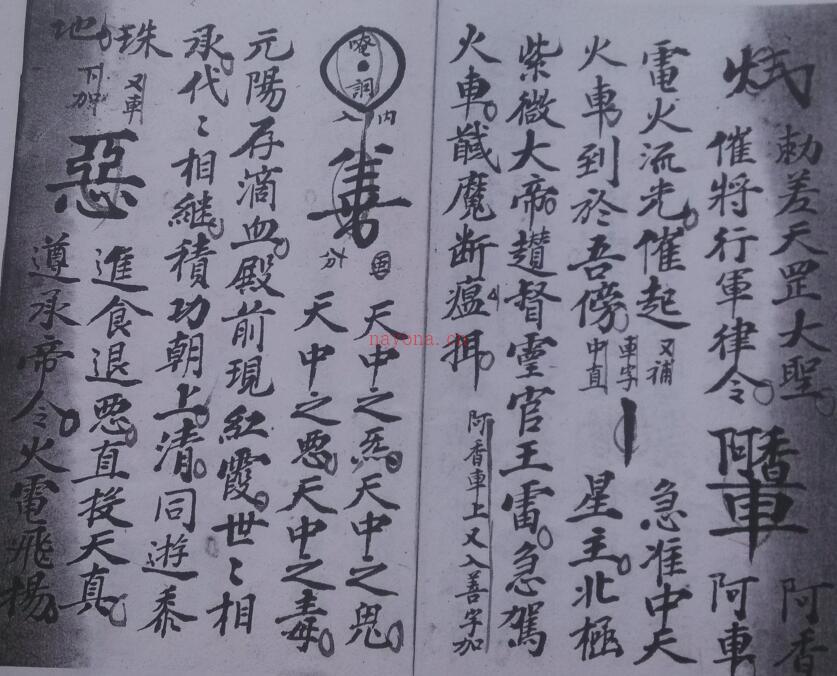 勅差天罡大聖
催將行軍律令
阿香車
阿香
阿車
電火流光催起
又補
車字
中直
急准中天
火車到於吾傍
星主北極
紫微大帝趲督靈官王雷急駕
火車馘魔断瘟抇
阿香車上又入善字加
唵
詞
内
入
天中之炁天中之鬼
天中之悪天中之毒
元陽存滴血殿前現紅霞世〻相
承代〻相継積功朝上清同遊黍
珠
又車
下加
地
惡
進食退悪直投天真
遵承帝令火電飛楊
nayona.cn